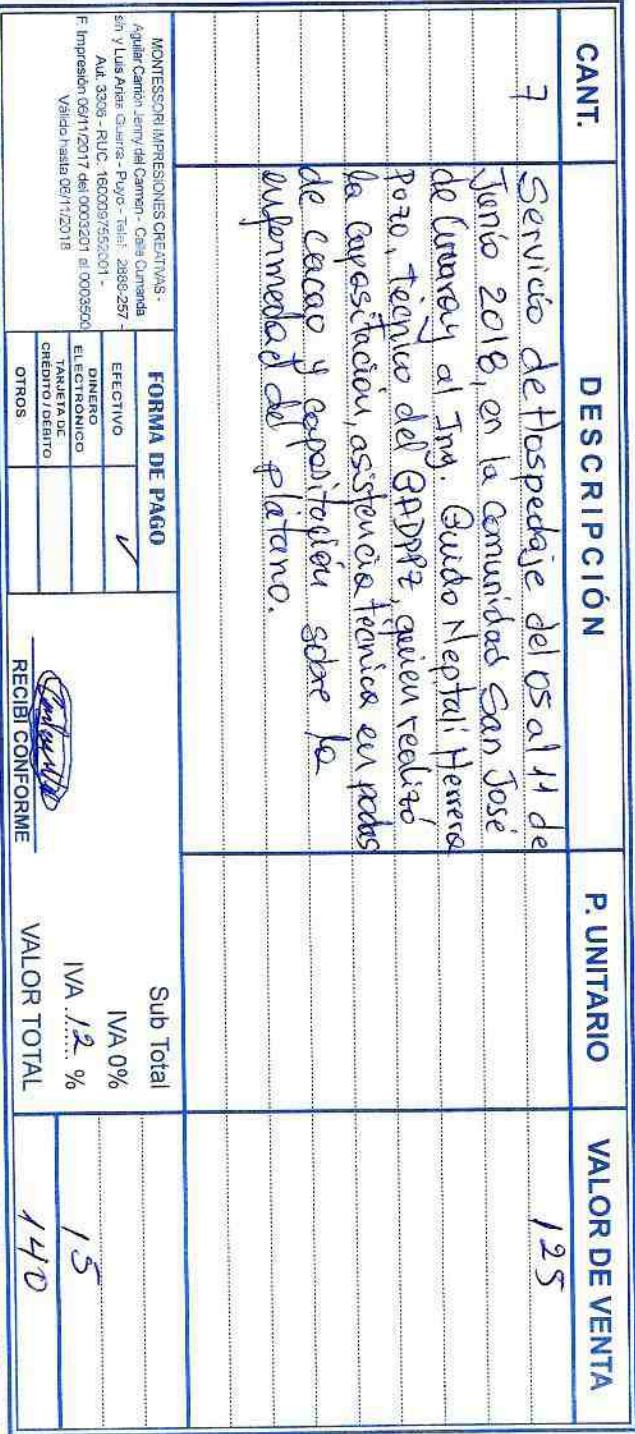 CANT. DESCRIPCIÓN P. UNITARIO VALOR DE VENTA
7 Servicio de Hospedaje del 05 al 11 de 125
Junio 2018, en la Comunidad San José
de Curaray al Ing. Guido Neptalí Herrera
Pozo, técnico del GADPPZ, quien realizó
la capasitación, asistencia técnica en podas
de cacao y capasitación sobre la
enfermedad del plátano.
MONTESSORI IMPRESIONES CREATIVAS -
Aguilar Carrión Jenny del Carmen - Calle Cumanda
s/n y Luis Arias Guerra - Puyo - Telef. 2888-257 -
Aut. 3306 - RUC. 1600097552001 -
F. Impresión 06/11/2017 del 0003201 al 0003500
Válido hasta 06/11/2018
FORMA DE PAGO
EFECTIVO ✓
DINERO
ELECTRÓNICO
TARJETA DE
CRÉDITO / DÉBITO
OTROS
RECIBI CONFORME
Sub Total
IVA 0%
IVA 12 % 15
VALOR TOTAL 140